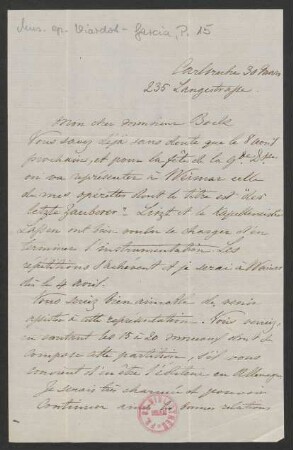 Mus. ep. Viardot-Garcia, P. 15
Carlsruhe 30 Mars
235 Langestrasse
Mon cher monsieur Bock
Vous savez déjà sans doute que le 8 avril
prochain, et pour la fête de la Gde Dsse
on va représenter à Weimar celle
de mes opérettes dont le titre est "der
letzte Zauberer". Liszt et le Kapellmeister
Lassen ont bien voulu se charger d'en
terminer l'instrumentation. Les
répétitions s'achèvent et je serai à Weimar
dès le 4 avril.
Vous seriez bien aimable de venir
assister à cette représentation. Vous verrez,
en écoutant les 15 à 20 morceaux dont se
compose cette partition, s'il vous
convient d'en être l'éditeur en Allemagne.
Je serais très charmée de pouvoir
continuer ainsi les bonnes relations